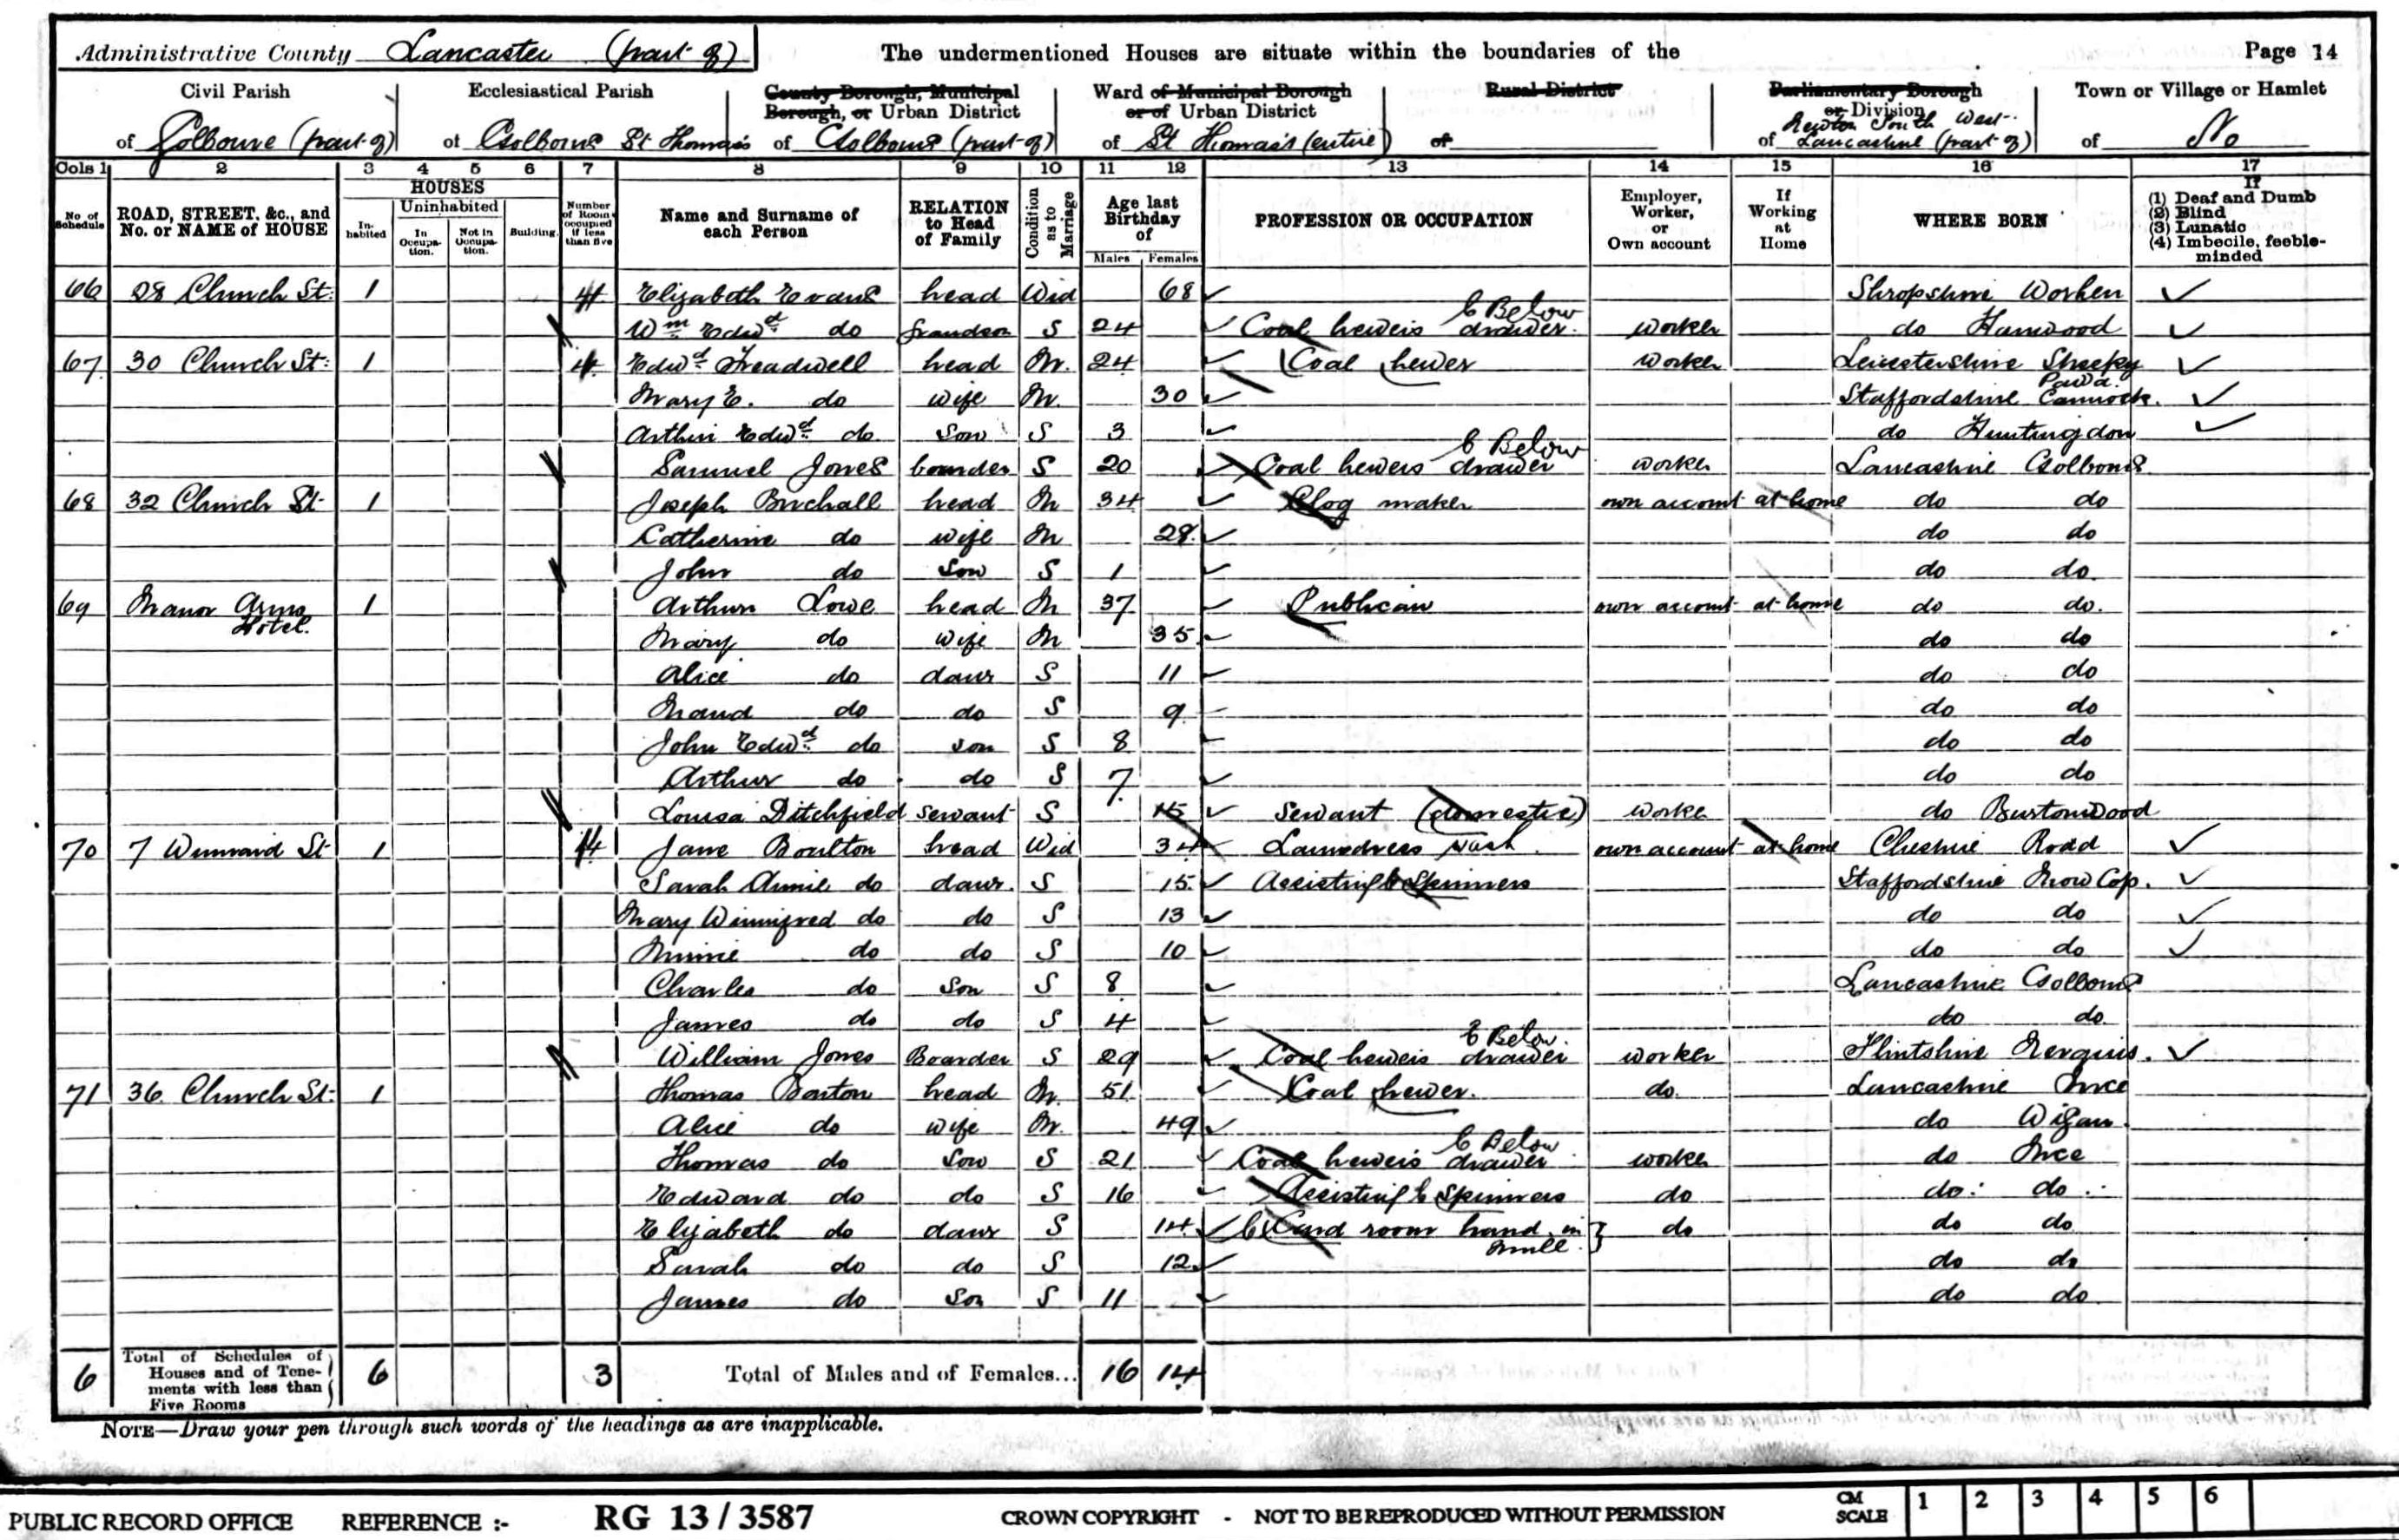 Administrative County Lancaster (part of) The undermentioned Houses are situate within the boundaries of the Page 14
Civil Parish Ecclesiastical Parish County Borough, Municipal Borough, or Urban District Ward of Municipal Borough or of Urban District Rural District Parliamentary Borough or Division Town or Village or Hamlet
of Golborne (part of) of Golborne St Thomas's of Golborne (part of) of St Thomas's (entire) of of Newton South West Lancashire (part of) of No
Cols 1 2 3 4 5 6 7 8 9 10 11 12 13 14 15 16 17
No of Schedule ROAD, STREET, &c., and No. or NAME of HOUSE HOUSES Inhabited Uninhabited In Occupation. Not in Occupation. Building. Number of Rooms occupied if less than five Name and Surname of each Person RELATION to Head of Family Condition as to Marriage Age last Birthday of Males Females PROFESSION OR OCCUPATION Employer, Worker, or Own account If Working at Home WHERE BORN If (1) Deaf and Dumb (2) Blind (3) Lunatic (4) Imbecile, feeble-minded
66 28 Church St: 1 4 Elizabeth Evans head Wid 68 Shropshire Worhen
Wm Edwd do grandson S 24 Coal hewers drawer C Below worker do Hanwood
67 30 Church St: 1 4 Edwd Treadwell head M. 24 Coal hewer worker Leicestershire
Mary E. do wife M. 30 Staffordshire Cannock.
Arthur Edwd do Son S 3 do Huntingdon
Samuel Jones boarder S 20 Coal hewers drawer C Below worker Lancashire Golborne
68 32 Church St 1 Joseph Burchall head M 34 Clog maker own account at home do do
Catherine do wife M 28 do do
John do Son S 1 do do
69 Manor Arms Hotel. 1 Arthur Lowe head M 37 Publican own account at home do do
Mary do wife M 35 do do
Alice do daur S 11 do do
Maud do do S 9 do do
John Edwd do son S 8 do do
Arthur do do S 7 do do
Louisa Ditchfield servant S 15 Servant (domestic) worker do Burtonwood
70 7 St 1 4 Jane Boulton head Wid 34 Laundress wash own account at home Cheshire Road
Sarah Annie do daur. S 15 Assisting C Spinners Staffordshire Mow Cop.
Mary Winnifred do do S 13 do do
Minnie do do S 10 do do
Charles do Son S 8 Lancashire Golborne
James do do S 4 do do
William Jones Boarder S 29 Coal hewers drawer C Below. worker Flintshire Nerquis.
71 36 Church St: 1 Thomas Banton head M. 51 Coal hewer. do. Lancashire Ince
Alice do wife M. 49 do Wigan
Thomas do Son S 21 Coal hewers drawer C Below worker do Ince
Edward do do S 16 Assisting C Spinners do do do
Elizabeth do daur S 14 C Card room hand in mill. } do do do
Sarah do do S 12 do do
James do Son S 11 do do
6 Total of Schedules of Houses and of Tenements with less than Five Rooms 6 3 Total of Males and of Females... 16 14
NOTE—Draw your pen through such words of the headings as are inapplicable.
PUBLIC RECORD OFFICE REFERENCE :- RG 13 / 3587 CROWN COPYRIGHT - NOT TO BE REPRODUCED WITHOUT PERMISSION CM SCALE 1 2 3 4 5 6